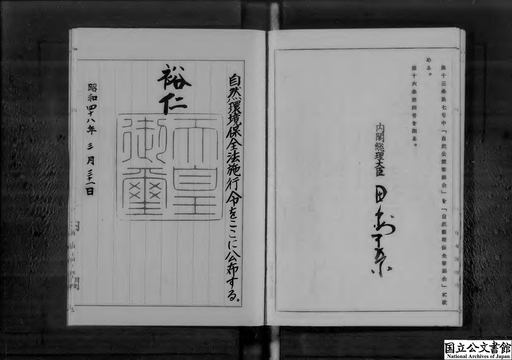 第十三条第七号中「自然公園審議会」を「自然環境保全審議会」に改
める。
第十六条第四号を削る。
内閣総理大臣
田中角栄
自然環境保全法施行令をここに公布する。
裕仁
天皇
御璽
昭和四十八年三月三十一日
国立公文書館
National Archives of Japan